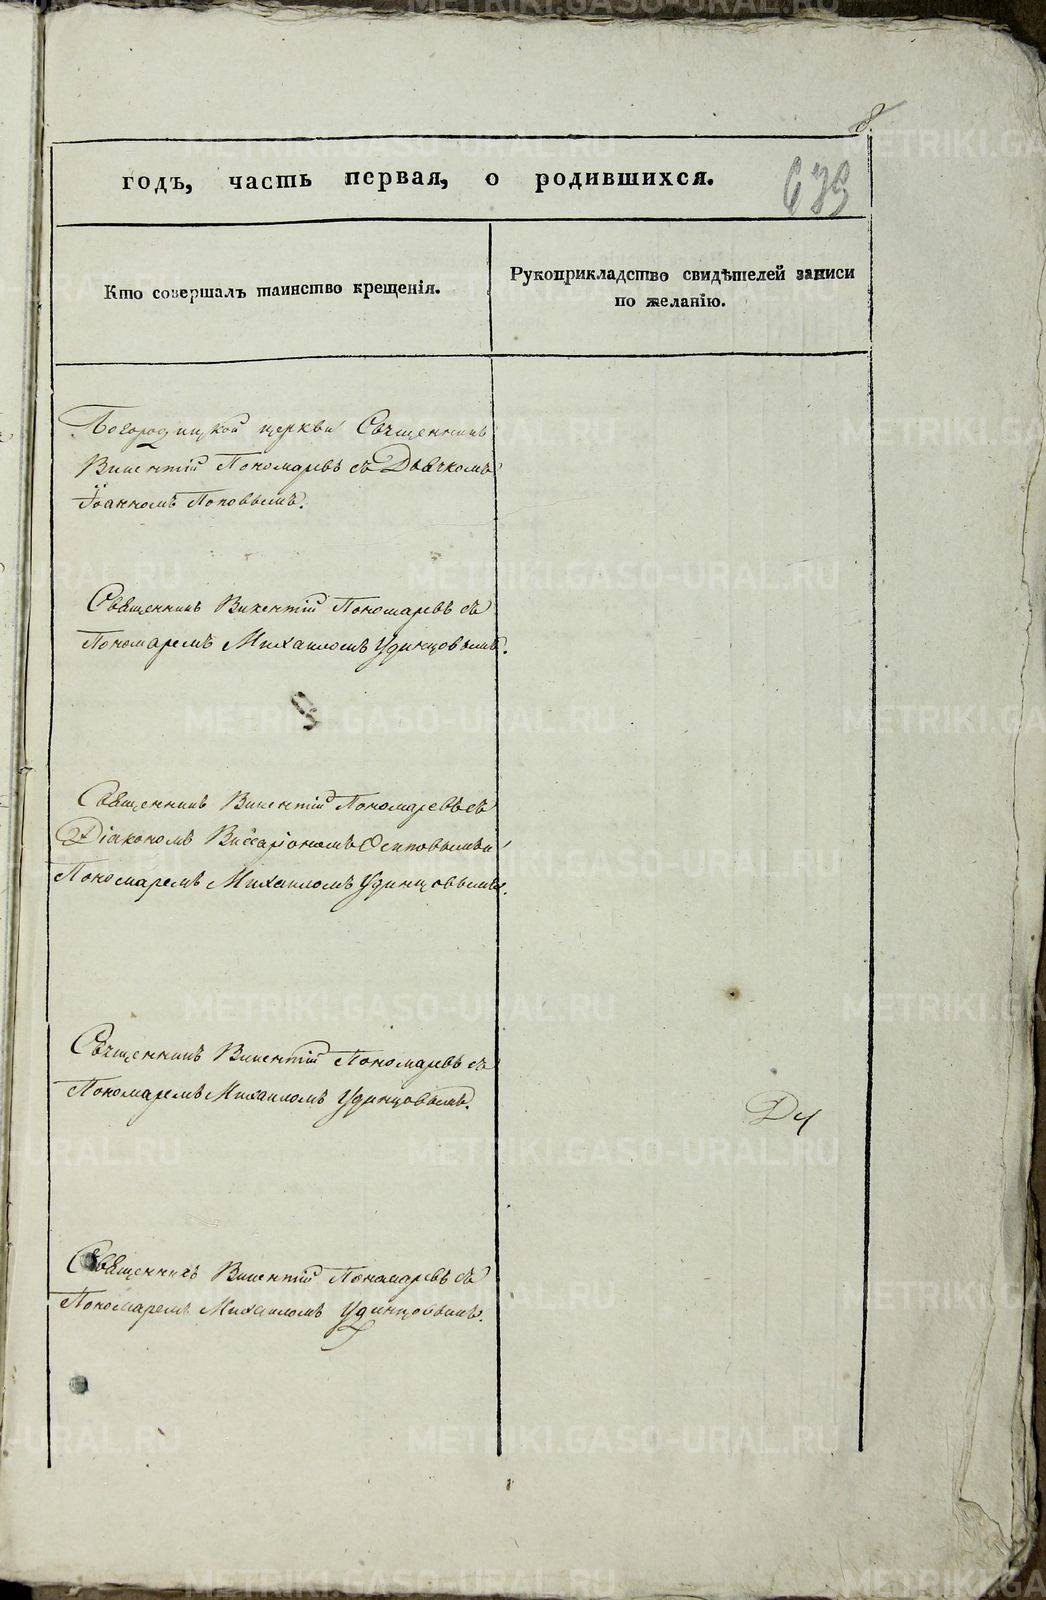 8.
639
годъ, часть первая, о родившихся.
Кто совершалъ таинство крещенія.
Рукоприкладство свидѣтелей записи
по желанію.
Богородицкой церкви Священникъ
Викентій Пономаревъ съ Дьячкомъ
Іоанномъ Поповымъ.
Священникъ Викентій Пономаревъ съ
Пономаремъ Михаиломъ Удинцовымъ.
Священникъ Викентій Пономаревъ съ
Діакономъ Виссаріономъ Осиповымъ и
Пономаремъ Михаиломъ Удинцовымъ.
Священникъ Викентій Пономаревъ съ
Пономаремъ Михаиломъ Удинцовымъ.
Священникъ Викентій Пономаревъ съ
Пономаремъ Михаиломъ Удинцовымъ.
METRIKI.GASO-URAL.RU